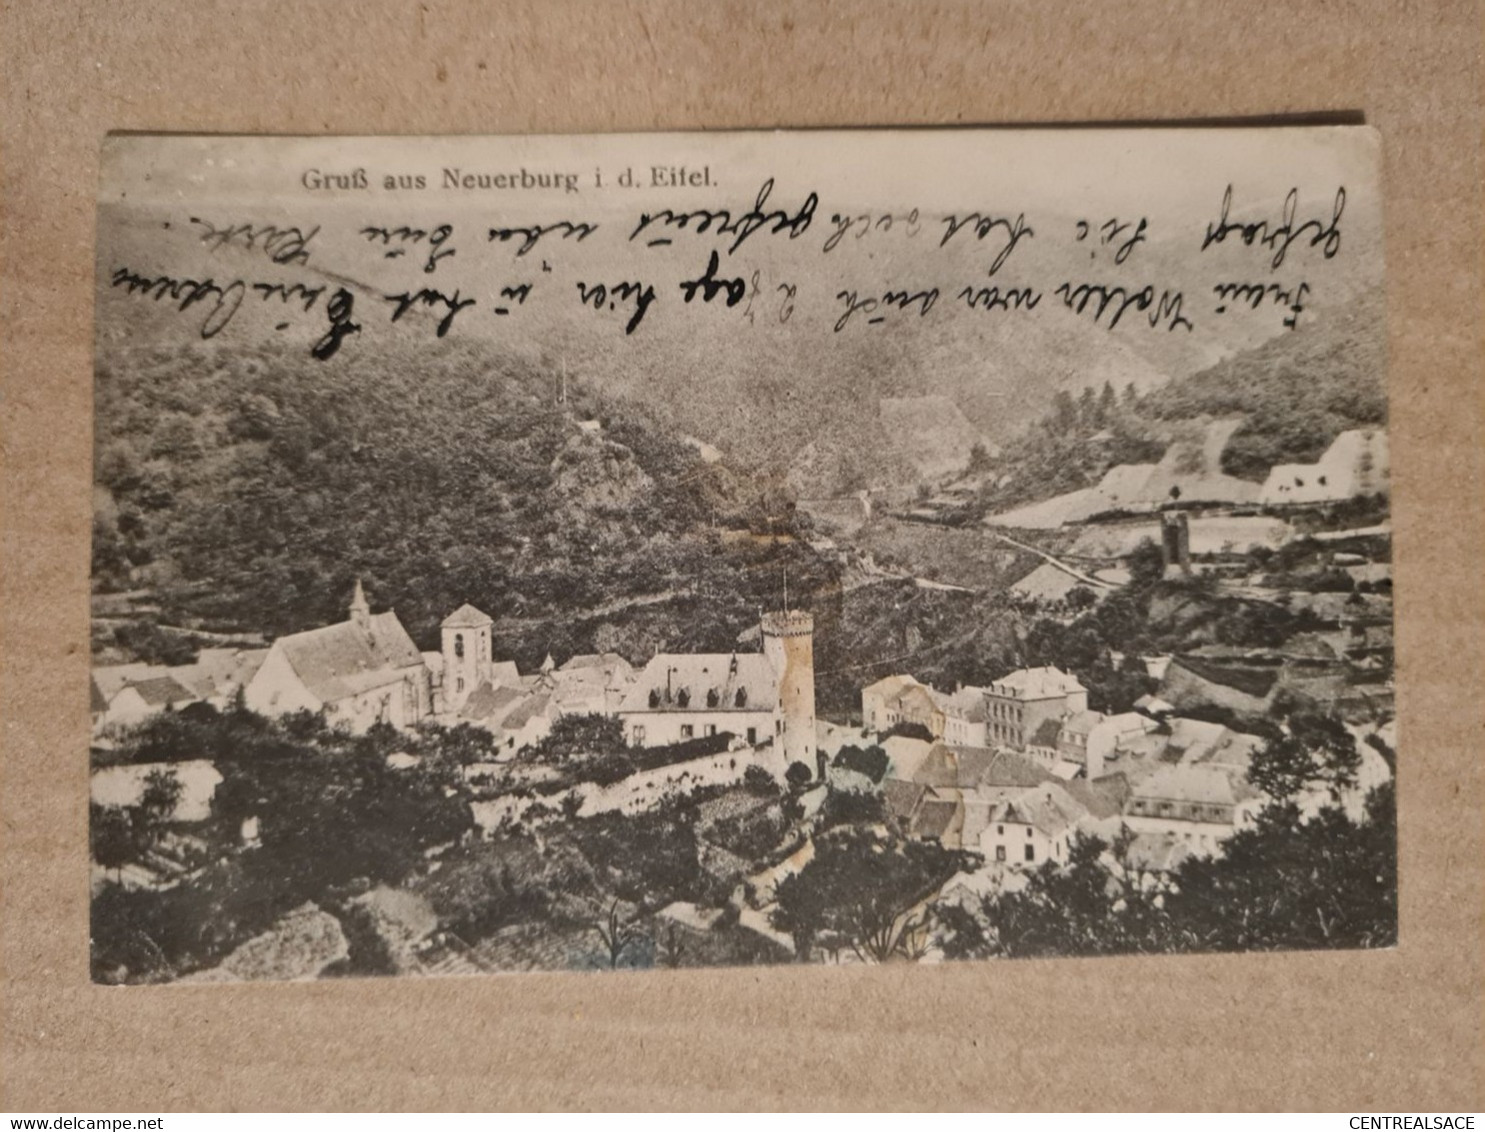 Gruß aus Neuerburg i. d. Eifel.
Frau Wolter war auch 2 Tage hier, u hat Eure Adresse
gefragt. Sie hat sich gefreut über Eure Karte.
www.delcampe.net
CENTREALSACE